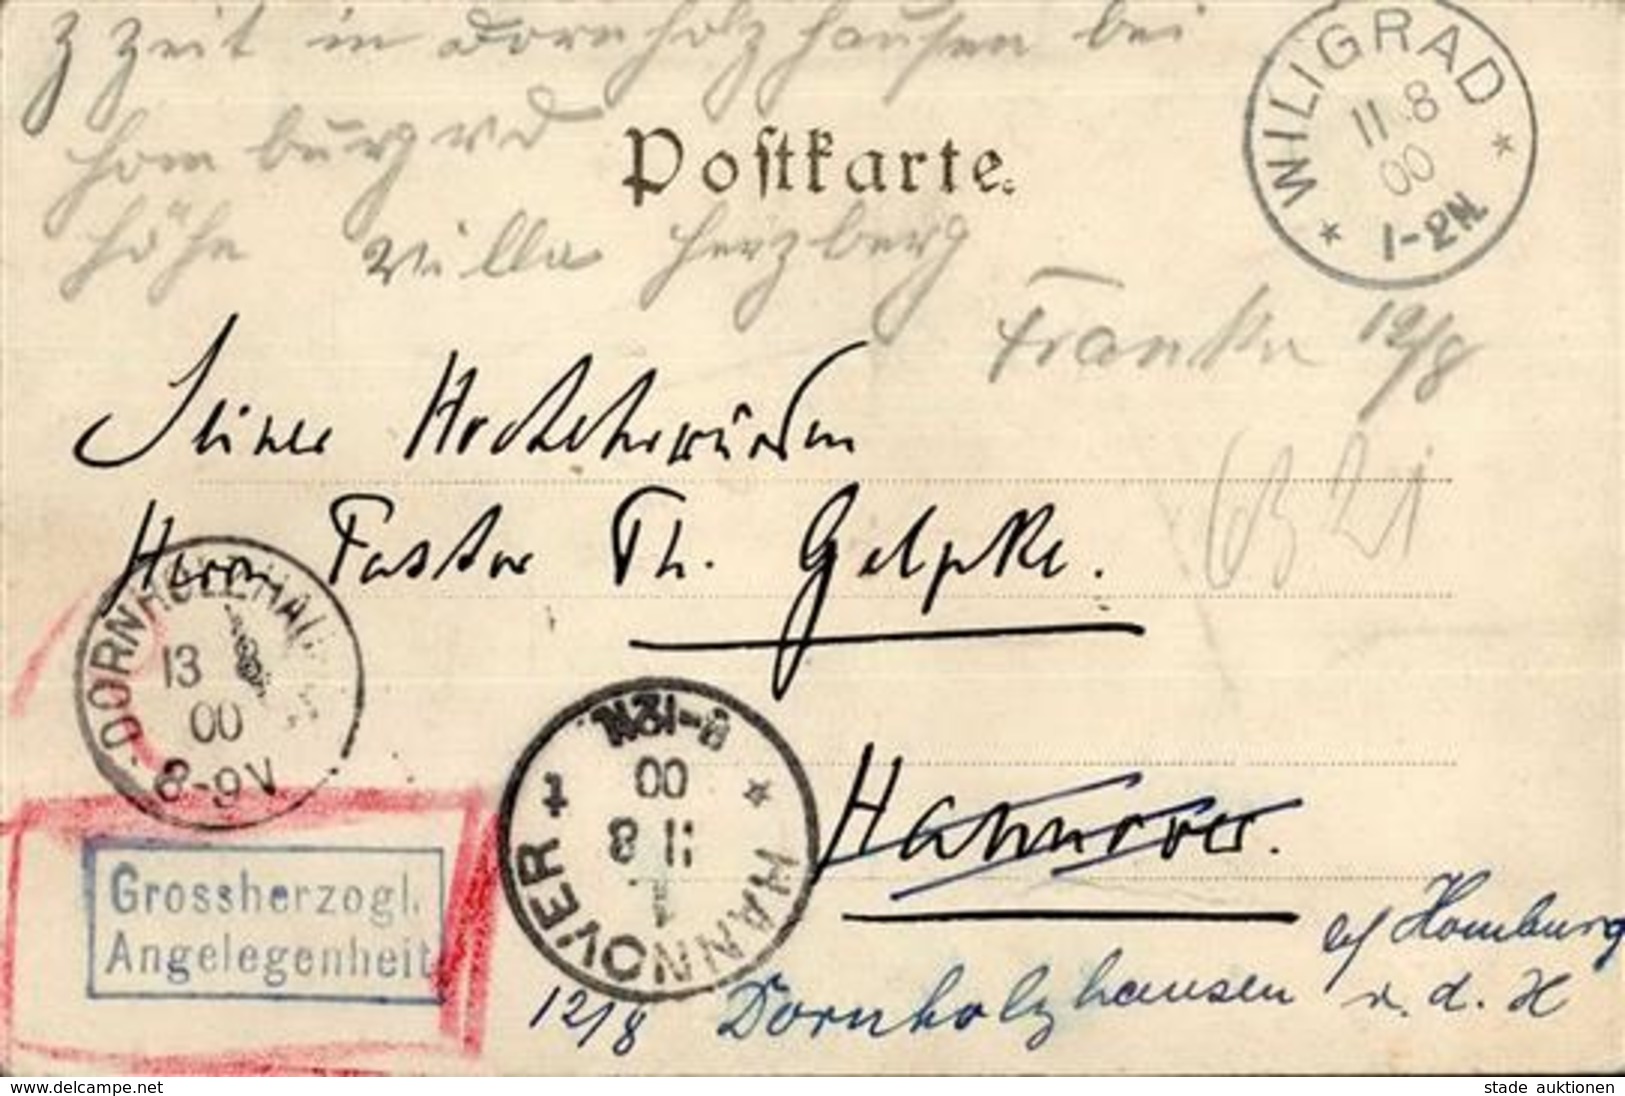 z Zeit in Dornholzhausen bei
Homburg v d
Höhe Villa Herzberg
Postkarte.
WILIGRAD
11.8
00
1-2N.
Franke 12/8
Seiner Hochehrwürden
Herrn Pastor Th. Gelpke.
63 21
DORNHOLZHAUSEN
13
00
8-9V
HANNOVER
11 8
00
Hannover.
Grossherzogl.
Angelegenheit
12/8 Dornholzhausen b/ Homburg
v. d. H
delcampe.net
stade auktionen